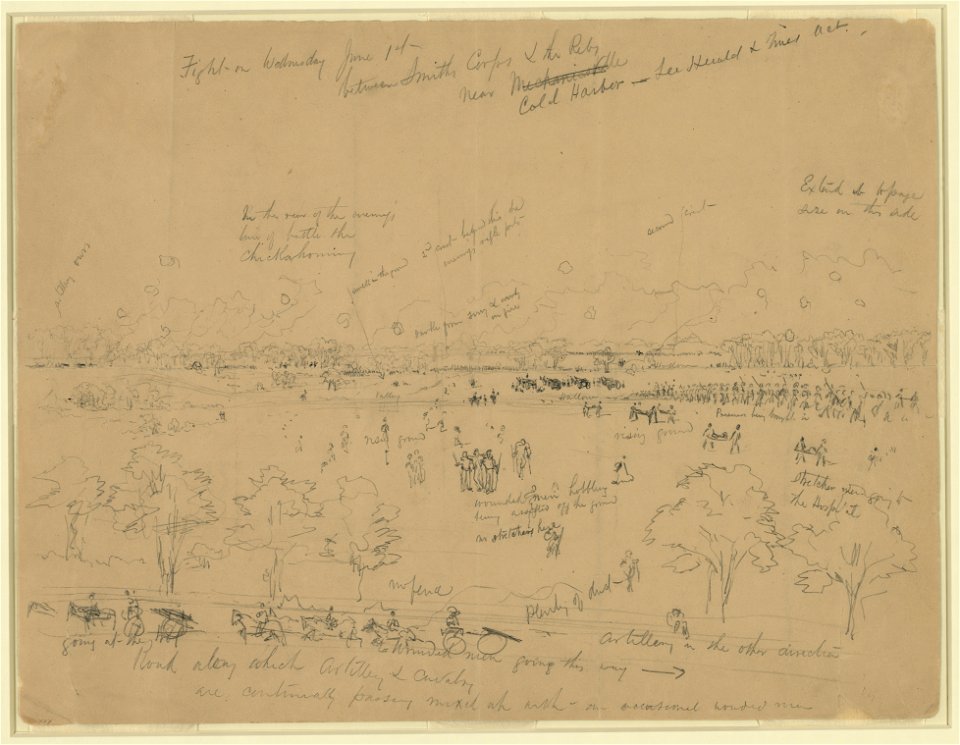 Fight on Wednesday June 1st
between Smiths Corps & the Rebs
near Mechanicsville
Cold Harbor — See Herald & Times act.
Extend to ½ page
size on this side
In the rear of the enemy's
line of battle the
Chickahominy
2nd
enemys rifle pits
smoke from & woods
on fire
valley
hollow
Prisoners being brought in
rising ground
rising ground
stretcher going to
the Hospital
wounded men hobbling
being assisted off the ground
no stretchers here
no fence
plenty of dust
going at the trot
Artillery in the other direction
wounded men going this way
Road along which Artillery & Cavalry
are continually passing mixed up with an occasional wounded man